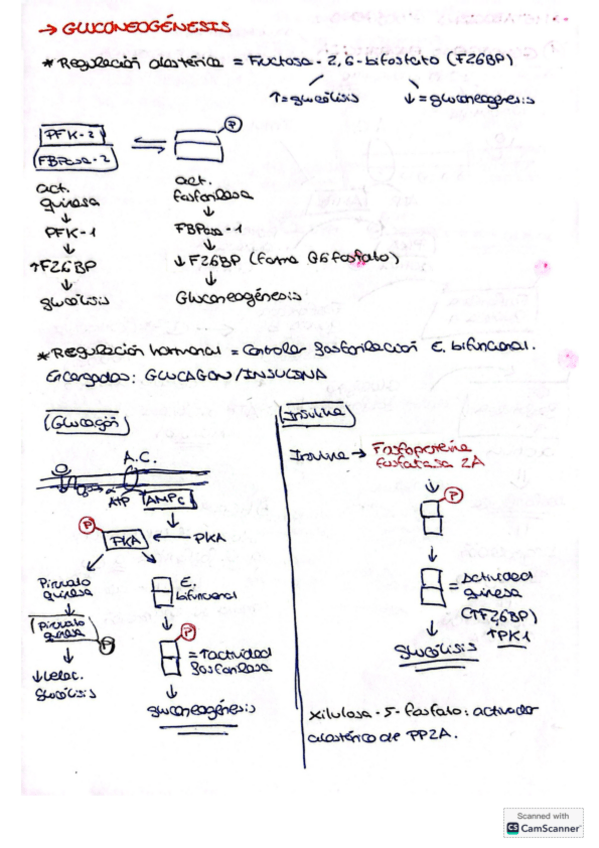 → GLUCONEOGÉNESIS
* Regulación alostérica = Fructosa - 2,6 - bifosfato (F26BP)
↑ = glucólisis ↓ = gluconeogénesis
PFK-2
FBPasa-2
P
act. quinasa
↓
PFK-1
↓
↑F26BP
↓
glucólisis
act. fosforilasa
↓
FBPasa-1
↓
↓ F26BP (forma G6fosfato)
↓
Gluconeogénesis
* Regulación hormonal = Controlar fosforilación E. bifuncional.
Encargados: GLUCAGON/INSULINA
Glucagón
A.C.
α
ATP
AMPc
↓
P
PKA ← PKA
Piruvato quinasa
↓
Piruvato quinasa
P
↓
glucólisis
E. bifuncional
↓
P
= ↑actividad fosforilasa
↓
gluconeogénesis
Insulina
Insulina → Fosfoproteína fosfatasa 2A
↓
P
↓
= Actividad quinasa
(↑F26BP)
↑PK1
↓
glucólisis
xilulosa - 5 - fosfato: activador
alostérico de PP2A.
Scanned with
CS CamScanner